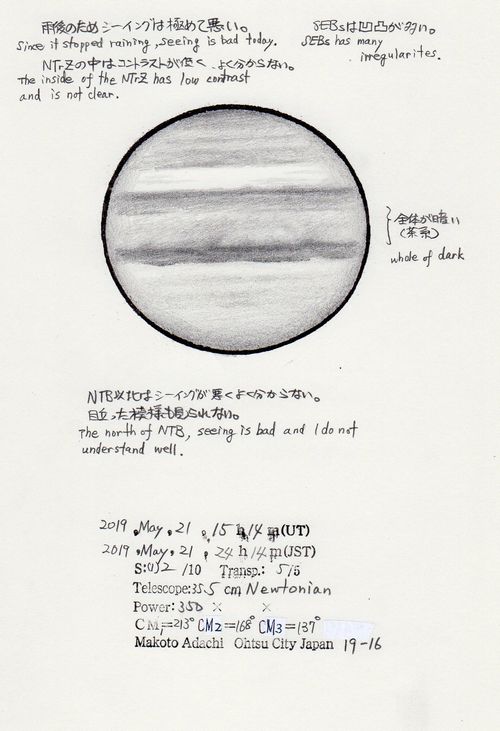 雨後のためシーイングは極めて悪い。
Since it stopped raining, seeing is bad today.
NTrZの中はコントラストが低く、よく分からない。
The inside of the NTrZ has low contrast
and is not clear.
SEBsは凹凸が多い。
SEBs has many
irregularites.
全体が暗い
(茶系)
whole of dark
NTB以北はシーイングが悪くよく分からない。
目立った模様も見られない。
The north of NTB, seeing is bad and I do not
understand well.
2019, May, 21, 15 h 14 m (UT)
2019, May, 21, 24 h 14 m (JST)
S:(1)2 /10 Transp.: 5/5
Telescope:35.5 cm Newtonian
Power: 350 × ×
CM1=213° CM2=168° CM3=137°
Makoto Adachi Ohtsu City Japan 19-16